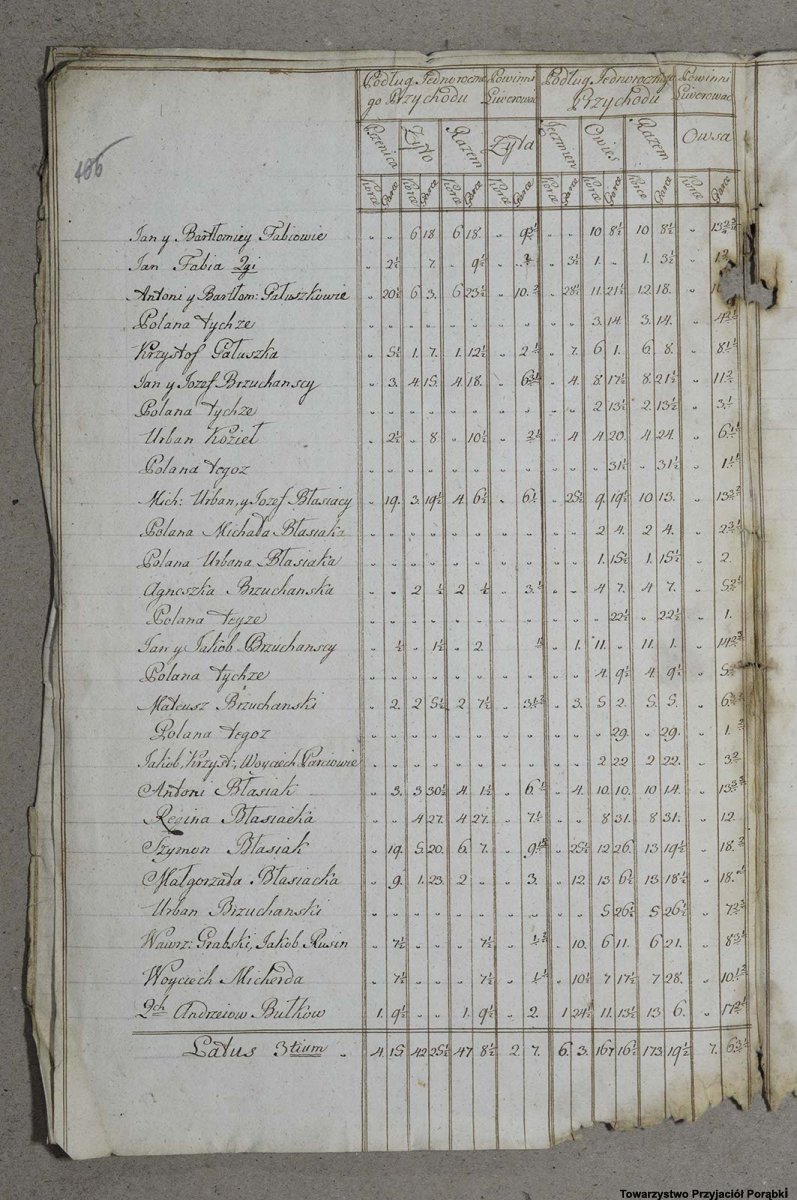 406
Podług Jednoroczne Powinni Podług Jednorocznego Powinni
go Przychodu Liwerować Przychodu Liwerować
Pszenica Zyto Razem Zyta Jęczmien Owies Razem Owsa
Korce Garce Korce Garce Korce Garce Korce Garce Korce Garce Korce Garce Korce Garce Korce Garce
Jan y Bartłomiey Fabiowie „ „ 6 18. 6 18. „ „ „ 10 8½ 10 8½ „
Jan Fabia 2gi „ 2½ „ 7. „ 9½ „ „ 3½ 1. „ 1. 3½ „
Antoni y Bartłom: Pałuszkowie „ 20½ 6 3. 6 23½ „ 10. „ 28½ 11. 21½ 12. 18. „
Polana tychze „ „ „ „ „ „ „ „ „ „ 3. 14. 3. 14. „
Krzysztof Pałuszka „ 5½ 1. 7. 1. 12½ „ 2 „ 7. 6 1. 6 8. „ 8
Jan y Jozef Brzuchanscy „ 3. 4. 15. 4. 18. „ „ 4. 8. 17½ 8. 21½ „ 11
Polana tychze „ „ „ „ „ „ „ „ „ „ 2 13½ 2. 13½ „ 3.
Urban Kozieł „ 2½ „ 8. „ 10½ „ „ 4 4 20. 4 24. „ 6
Polana tegoz „ „ „ „ „ „ „ „ „ „ „ 31½ „ 31½ „ 1.
Mich: Urban, y Jozef Błasiacy „ 19. 3. 19½ 4. 6½ „ 6 „ 25½ 9. 19½ 10 13. „ 13
Polana Michała Błasiaka „ „ „ „ „ „ „ „ „ „ 2 4. 2 4. „ 2
Polana Urbana Błasiaka „ „ „ „ „ „ „ „ „ „ 1. 15½ 1. 15½ „ 2.
Agneszka Brzuchanska „ „ 2 ½ 2 ½ „ 3. „ „ 4 7. 4 7. „ 5
Polana teyze „ „ „ „ „ „ „ „ „ „ „ 22½ „ 22½ „ 1.
Jan y Jakob Brzuchanscy „ ½ „ 1½ „ 2. „ 1. 11. „ 11. 1. „ 14
Polana tychze „ „ „ „ „ „ „ „ „ „ 4. 9½ 4. 9½ „ 5
Mateusz Brzuchanski „ 2. 2 5½ 2 7½ „ 3 „ 3. 5 2. 5. 5. „ 6
Polana tegoz „ „ „ „ „ „ „ „ „ „ „ 29. „ 29. „ 1.
Jakob, Krzyst:, Woyciech Parciowie „ „ „ „ „ „ „ „ „ „ 2 22 2 22. „ 3
Antoni Błasiak „ 3. 3 30½ 4. 1½ „ 6. „ 4. 10. 10. 10 14. „ 13
Regina Błasiacka „ „ 4 27. 4 27. „ 7 „ „ 8 31. 8 31. „ 12
Szymon Błasiak „ 19. 5. 20. 6. 7. „ 9 „ 25½ 12 26. 13 19½ „ 18.
Małgorzata Błasiacka „ 9. 1. 23. 2 „ „ 3. „ 12. 13 6½ 13. 18½ „ 18.
Urban Brzuchanski „ „ „ „ „ „ „ „ „ „ 5 26½ 5 26½ „ 7
Wawrz: Grabski, Jakob Rusin „ 7½ „ „ „ 7½ „ „ 10. 6 11. 6 21. „ 8
Woyciech Micherda „ 7½ „ „ „ 7½ „ „ 10½ 7 17½ 7 28. „ 10.
2ch Andrzeiow Bułków 1. 9½ „ „ 1. 9½ „ 2. 1 24½ 11. 13½ 13 6. „ 17
Latus 3tium „ 4. 15 42 25½ 47 8½ 2 7. 6. 3. 167 16½ 173 19½ 7. 6
Towarzystwo Przyjaciół Porąbki